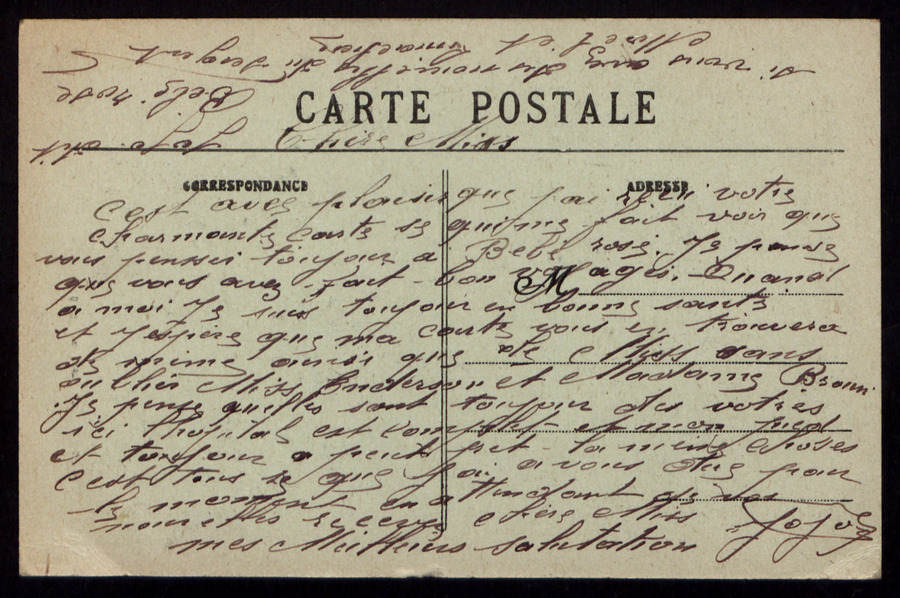 CARTE POSTALE
Chère Miss
CORRESPONDANCE ADRESSE
C'est avec plaisir que j'ai reçu votre
charmante carte se qui me fait voir que
vous pensez toujour a Bébé rose. Je pense
que vous avez fait bon voyages. Quand
M
a moi je suis toujour en bonne santé
et j'espère que ma carte vous en trouvera
de même ainsi que de Miss sans
oublier Miss Anderson et Madame Brown
Je pense quelles sont toujour des votres
ici l'hopital est complet et mon pied
et toujour a peut pret la même choses
C'est tous se que j'ai a vous dire pour
le moment en attendant de vos
nouvelles recevez chère Miss
mes Meilleurs salutation Jojo
Bébé rose
si vous avez des nouvelles du sergent
et